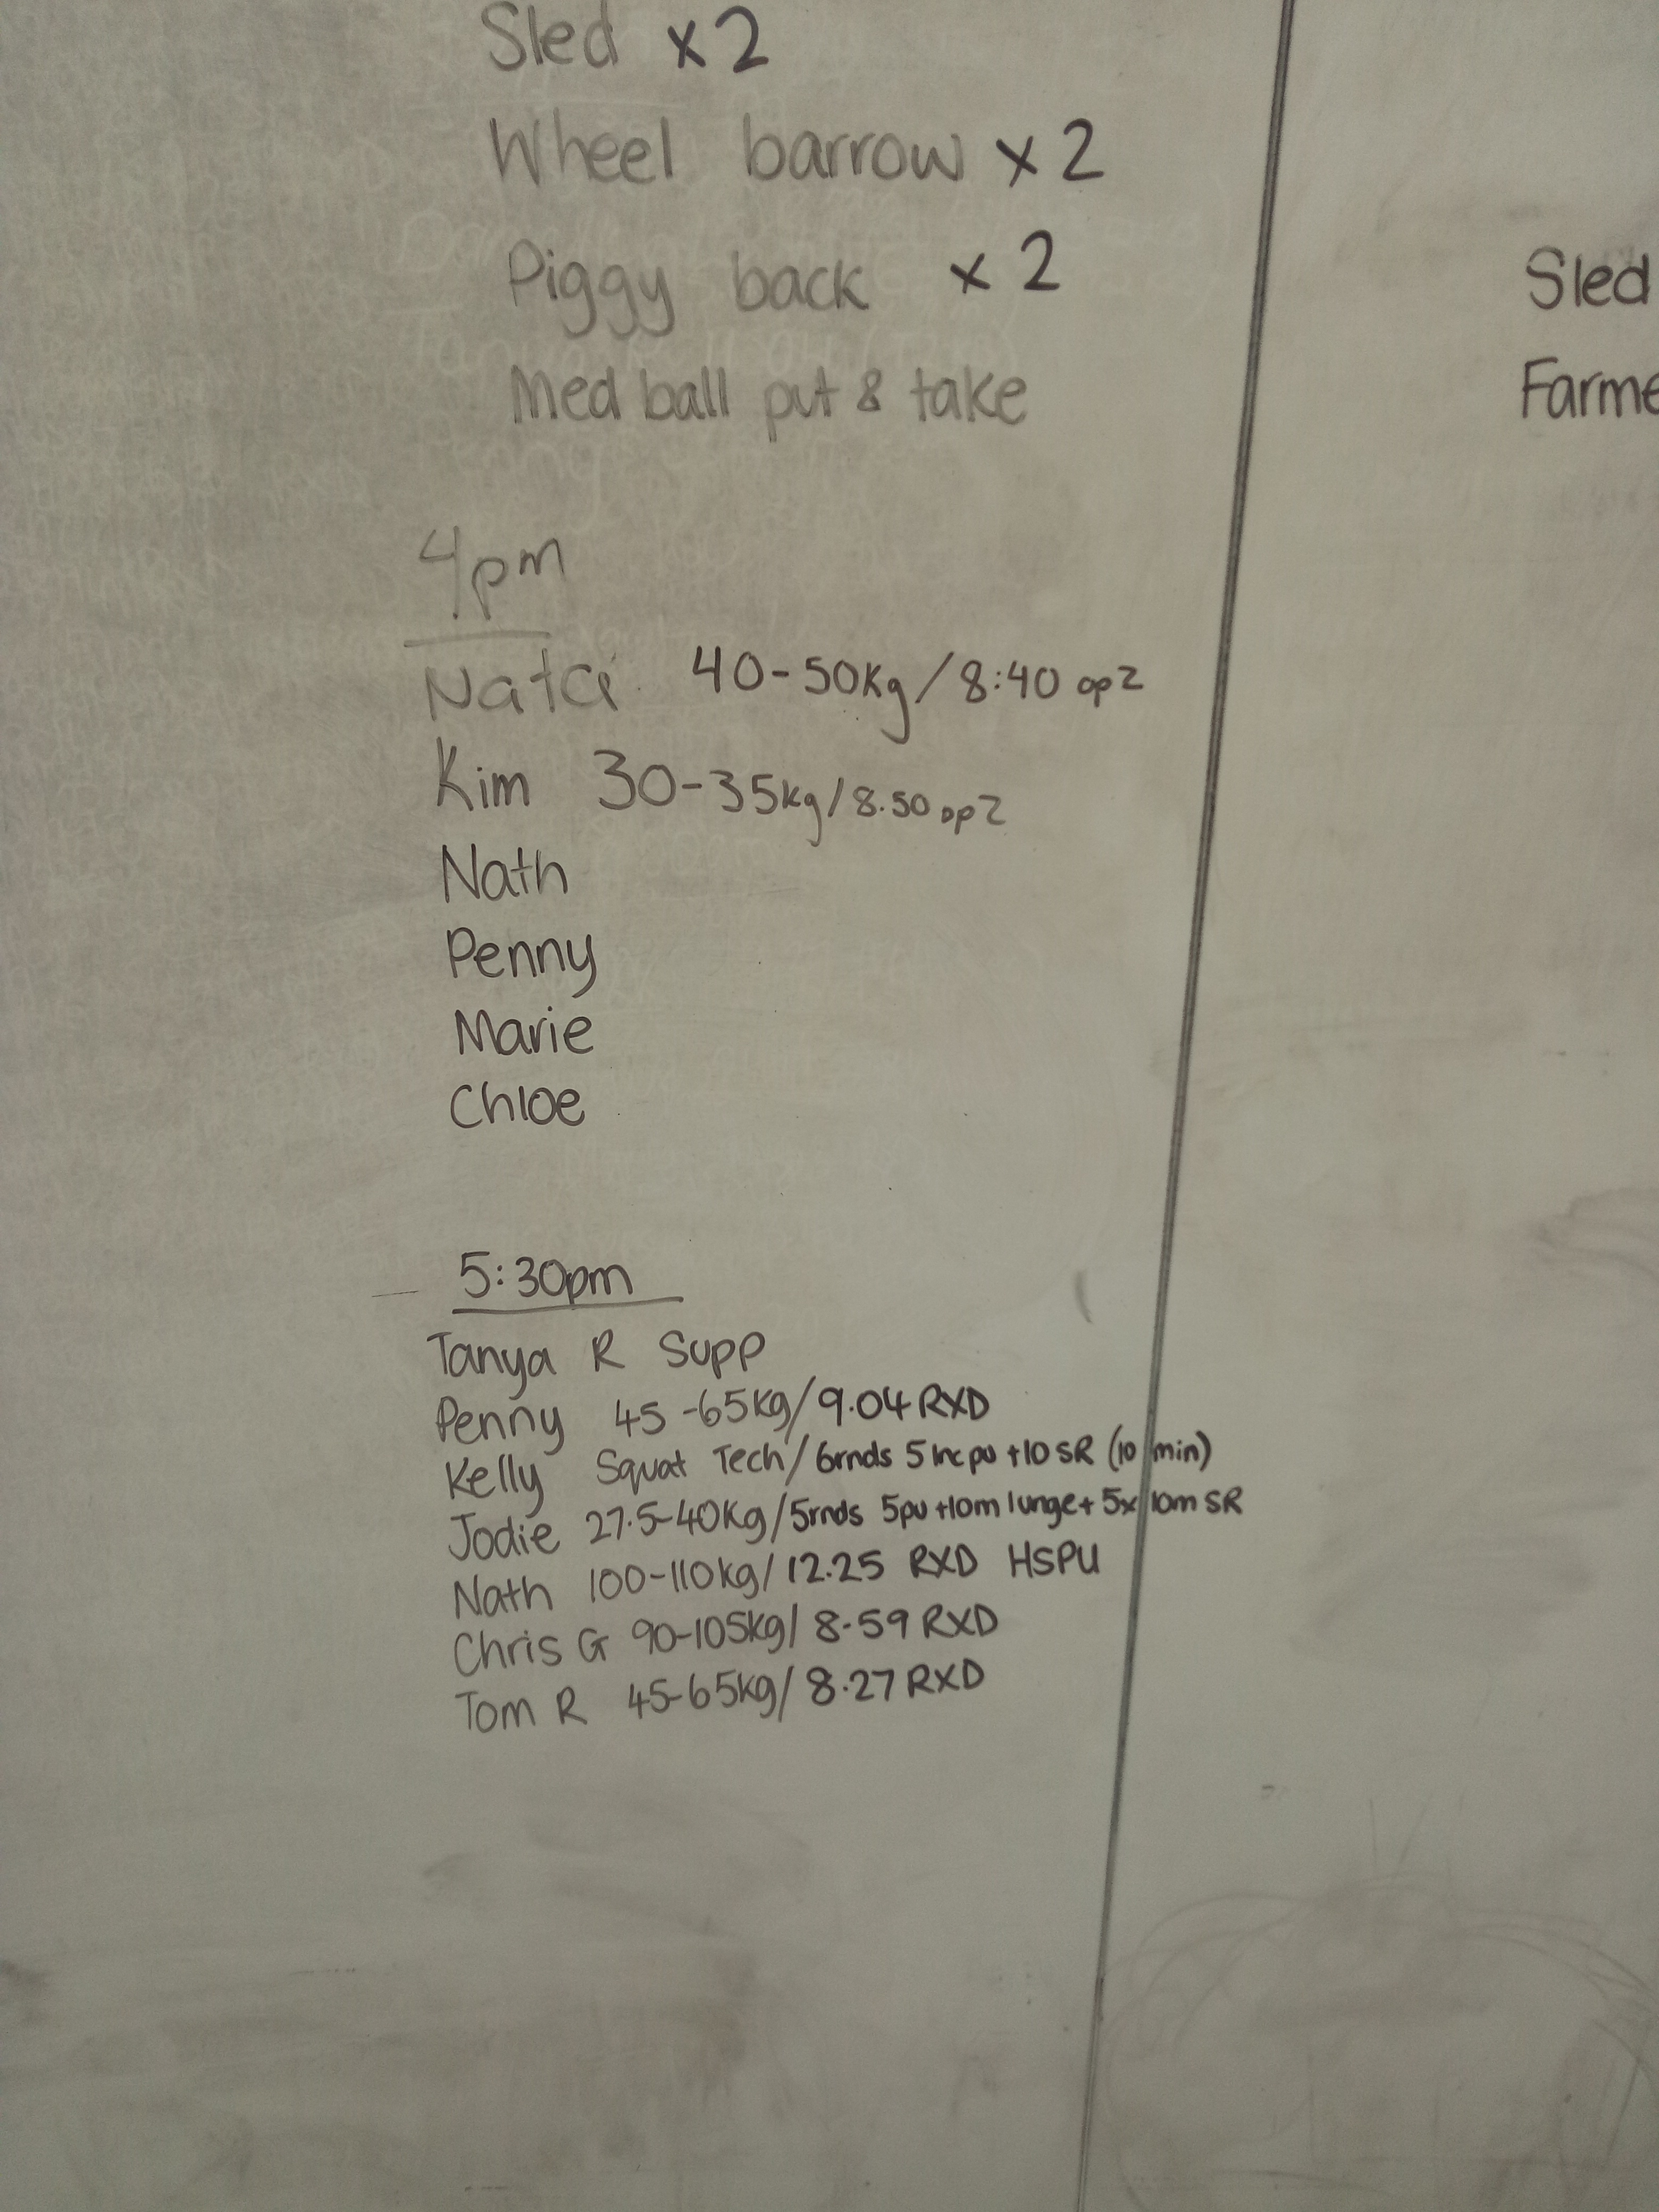 Sled x 2
Wheel barrow x 2
Piggy back x 2
Med ball put & take
Sled
Farme
4pm
40-50kg/8:40 op2
Kim 30-35kg/8.50 op2
Nath
Penny
Marie
Chloe
5:30pm
Tanya R Supp
Penny 45-65kg/9.04 RXD
Kelly Squat Tech/6rnds 5 inc pu +10 SR (10 min)
Jodie 27.5-40kg/5rnds 5pu +10m lunge + 5x 10m SR
Nath 100-110kg/12.25 RXD HSPU
Chris G 90-105kg/8.59 RXD
Tom R 45-65kg/8.27 RXD